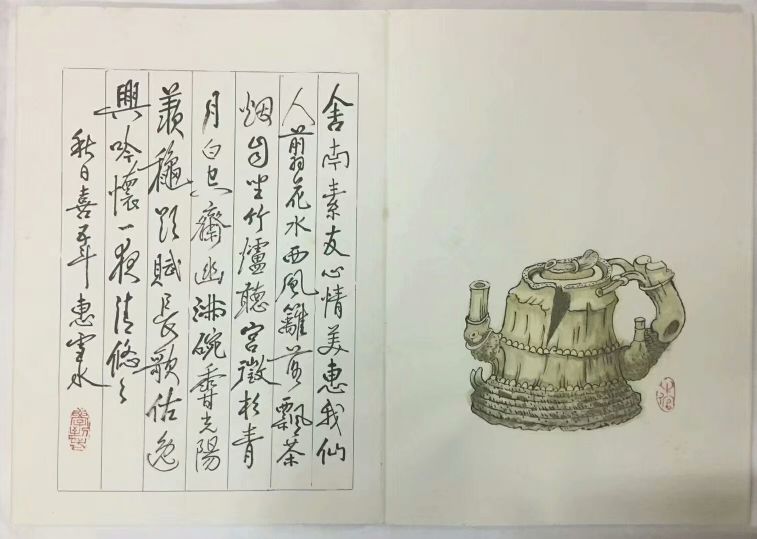 舍南素友心情美惠我仙
人翦花水西風籬落飄茶
烟自坐竹爐聽宮徵杉青
月白空齋幽沸碗香先陽
羨龝 賦長歌佐逸
興吟懷一夜清悠々
秋日喜 惠雪水